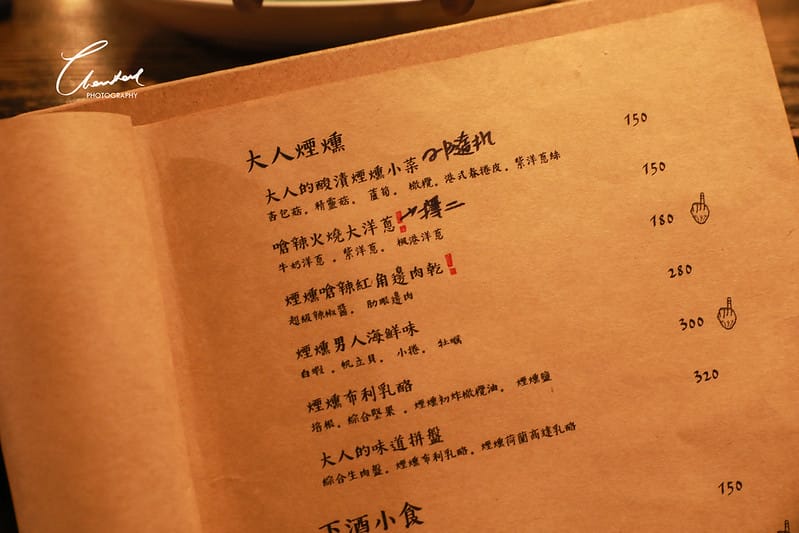 Chenhow
PHOTOGRAPHY
大人煙燻
大人的酸漬煙燻小菜 150
杏包菇。精靈菇。蘆筍。橄欖。港式春捲皮。紫洋蔥絲
嗆辣火燒大洋蔥! →擇二 150
牛奶洋蔥。紫洋蔥。楓港洋蔥
煙燻嗆辣紅角邊肉乾! 180
超級辣椒醬。肋眼邊肉
煙燻男人海鮮味 280
白蝦。帆立貝。小捲。牡蠣
煙燻布利乳酪 300
培根。綜合堅果。煙燻初炸橄欖油。煙燻鹽
大人的味道拼盤 320
綜合生肉盤。煙燻布利乳酪。煙燻荷蘭高達乳酪
下酒小食
150